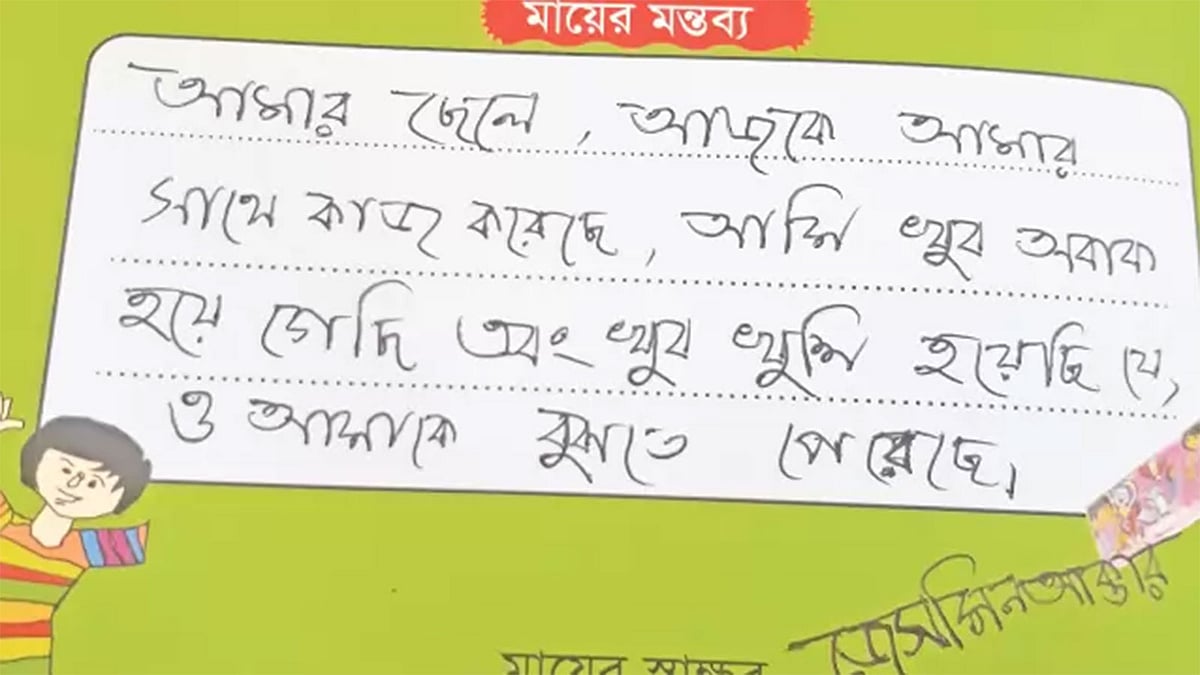 মায়ের মন্তব্য
আমার ছেলে, আজকে আমার
সাথে কাজ করেছে, আমি খুব অবাক
হয়ে গেছি এবং খুব খুশি হয়েছি যে,
ও আমাকে বুঝতে পেরেছে।
জেসমিন আক্তার
মায়ের স্বাক্ষর